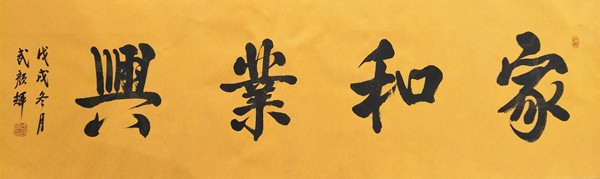 家和業興
戊戌冬月
武顏輝